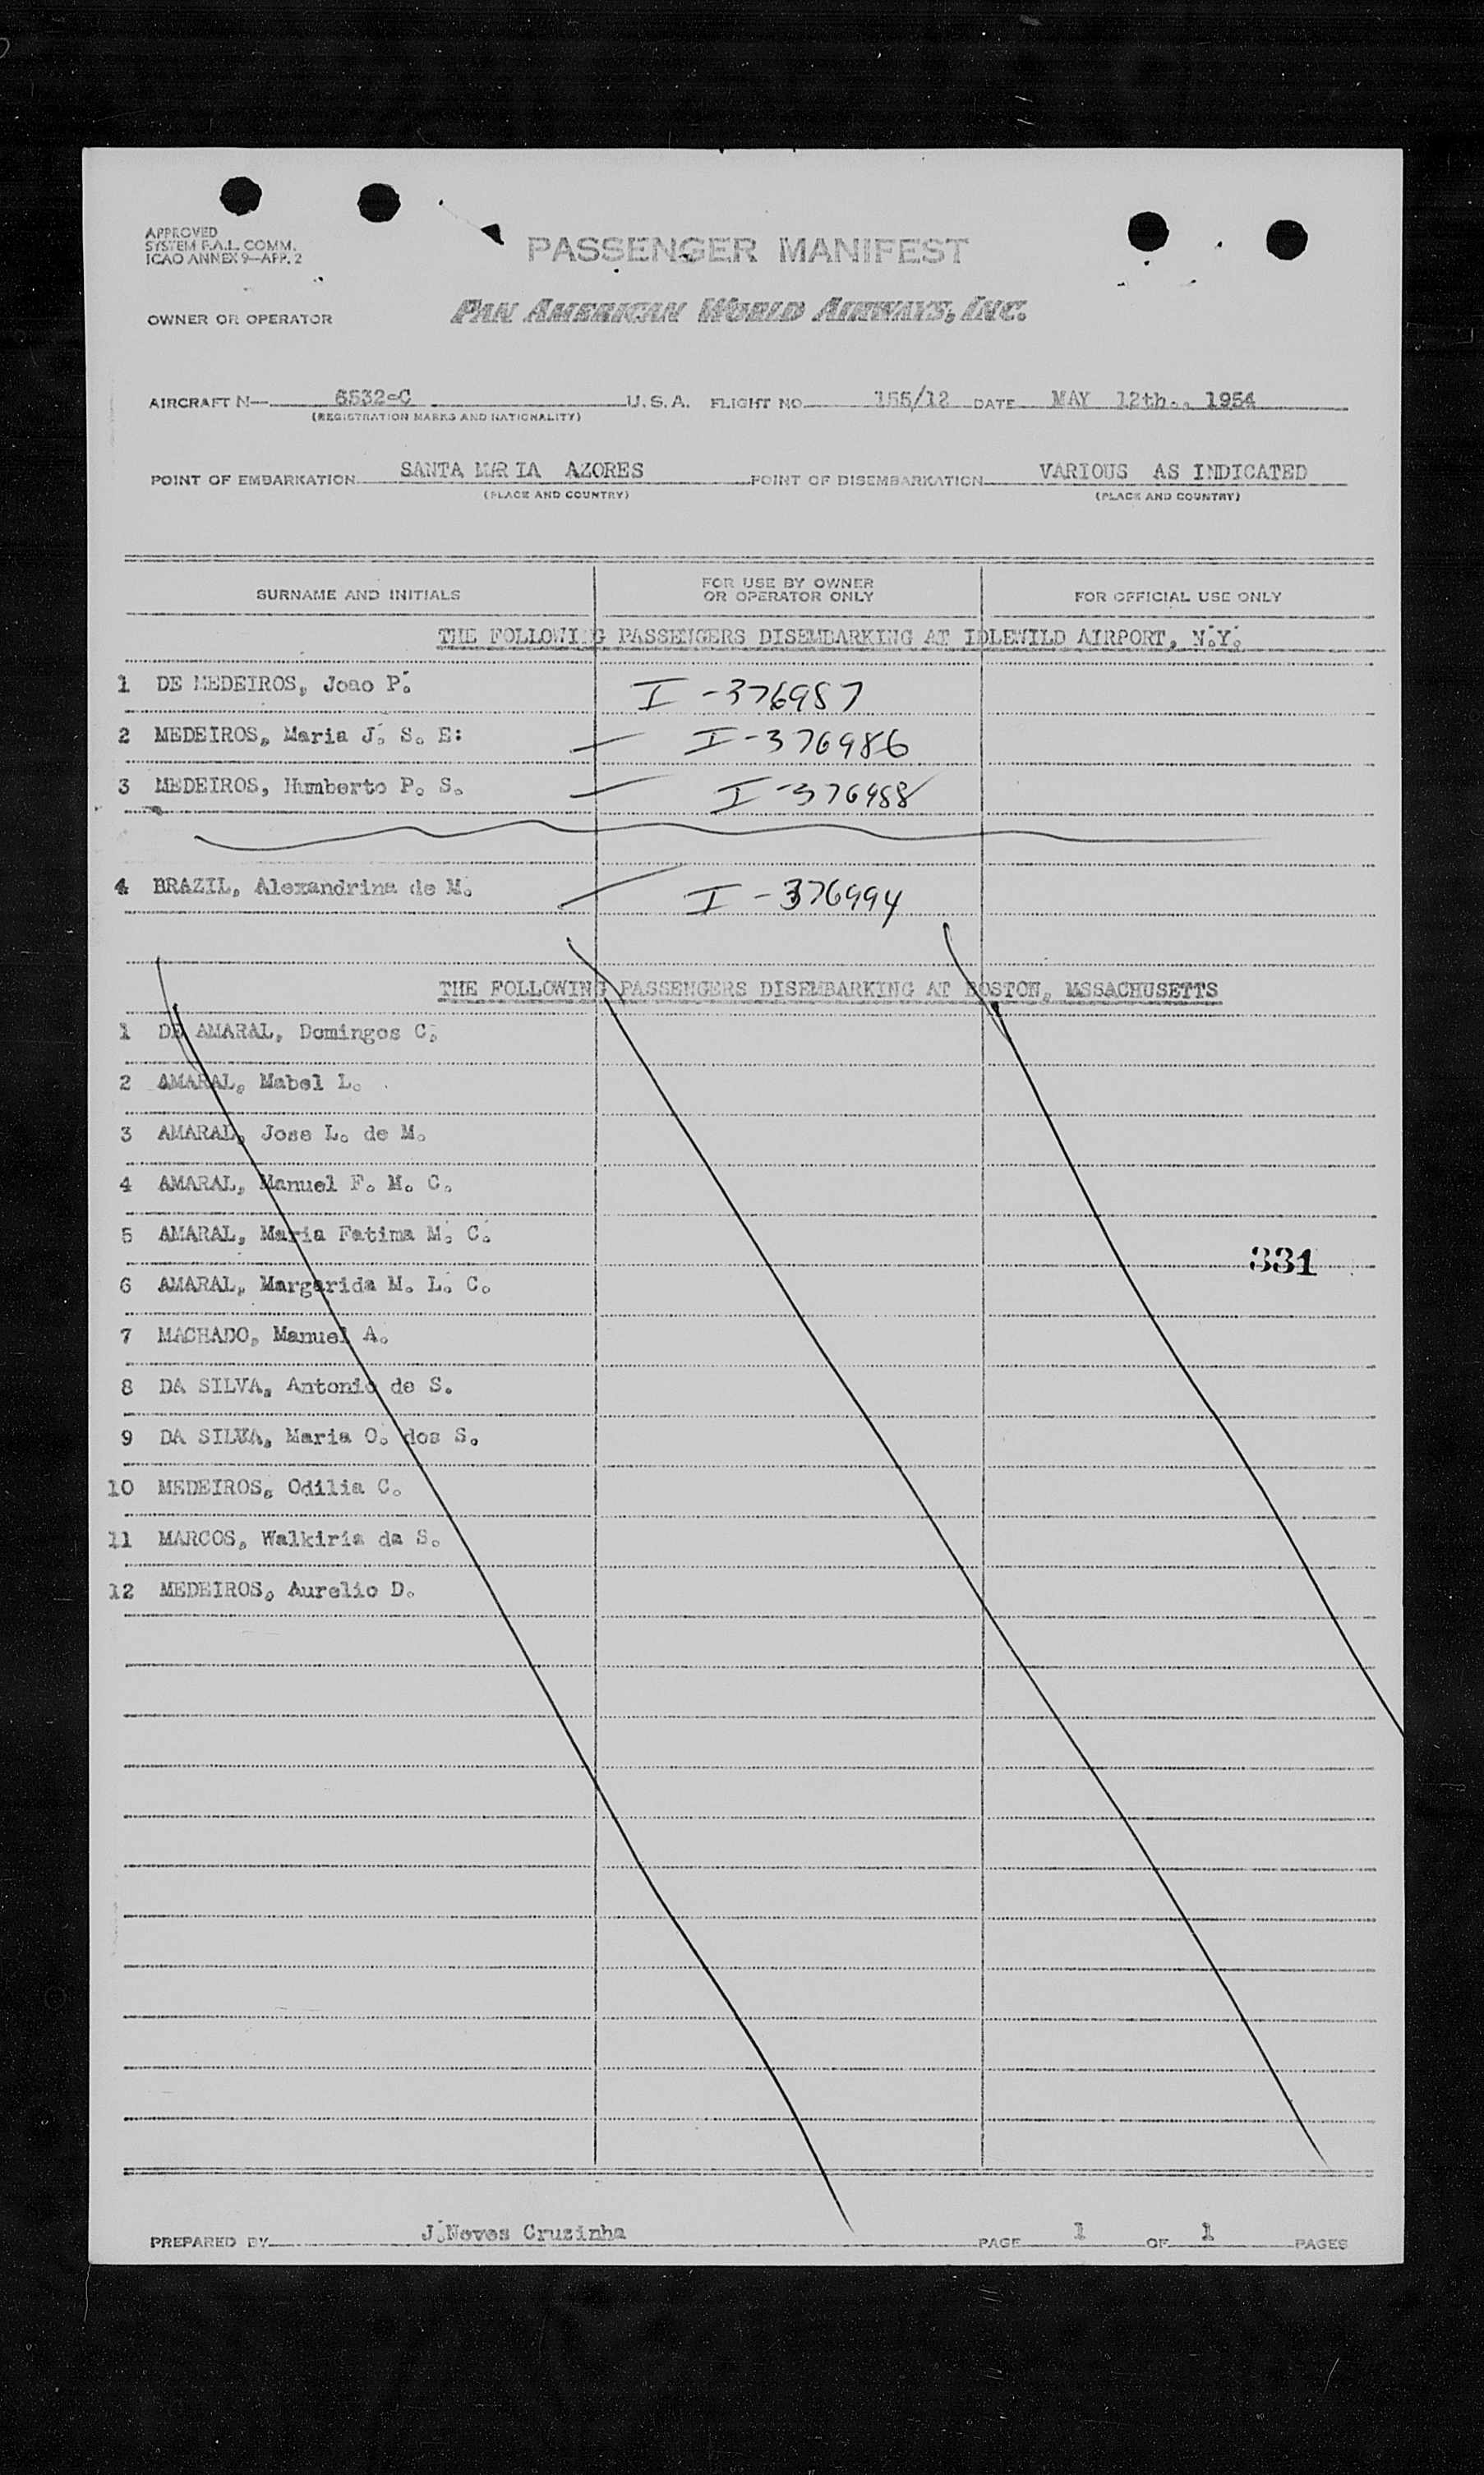 APPROVED
SYSTEM F.A.L. COMM.
ICAO ANNEX 9—APP. 2
PASSENGER MANIFEST
OWNER OR OPERATOR PAN AMERICAN WORLD AIRWAYS, INC.
AIRCRAFT N— 6532-C U.S.A. FLIGHT NO. 155/12 DATE MAY 12th., 1954
(REGISTRATION MARKS AND NATIONALITY)
POINT OF EMBARKATION SANTA MARIA AZORES POINT OF DISEMBARKATION VARIOUS AS INDICATED
(PLACE AND COUNTRY) (PLACE AND COUNTRY)
SURNAME AND INITIALS FOR USE BY OWNER OR OPERATOR ONLY FOR OFFICIAL USE ONLY
THE FOLLOWING PASSENGERS DISEMBARKING AT IDLEWILD AIRPORT, N.Y.
1 DE MEDEIROS, Joao P. I-376987
2 MEDEIROS, Maria J. S. E: I-376986
3 MEDEIROS, Humberto P. S. I-376988
4 BRAZIL, Alexandrina de M. I-376994
THE FOLLOWING PASSENGERS DISEMBARKING AT BOSTON, MSSACHUSETTS
1 DE AMARAL, Domingos C.
2 AMARAL, Mabel L.
3 AMARAL, Jose L. de M.
4 AMARAL, Manuel F. M. C.
5 AMARAL, Maria Fatima M. C.
331
6 AMARAL, Margarida M. L. C.
7 MACHADO, Manuel A.
8 DA SILVA, Antonio de S.
9 DA SILVA, Maria O. dos S.
10 MEDEIROS, Odilia C.
11 MARCOS, Walkiria da S.
12 MEDEIROS, Aurelio D.
PREPARED BY J.Neves Cruzinha PAGE 1 OF 1 PAGES